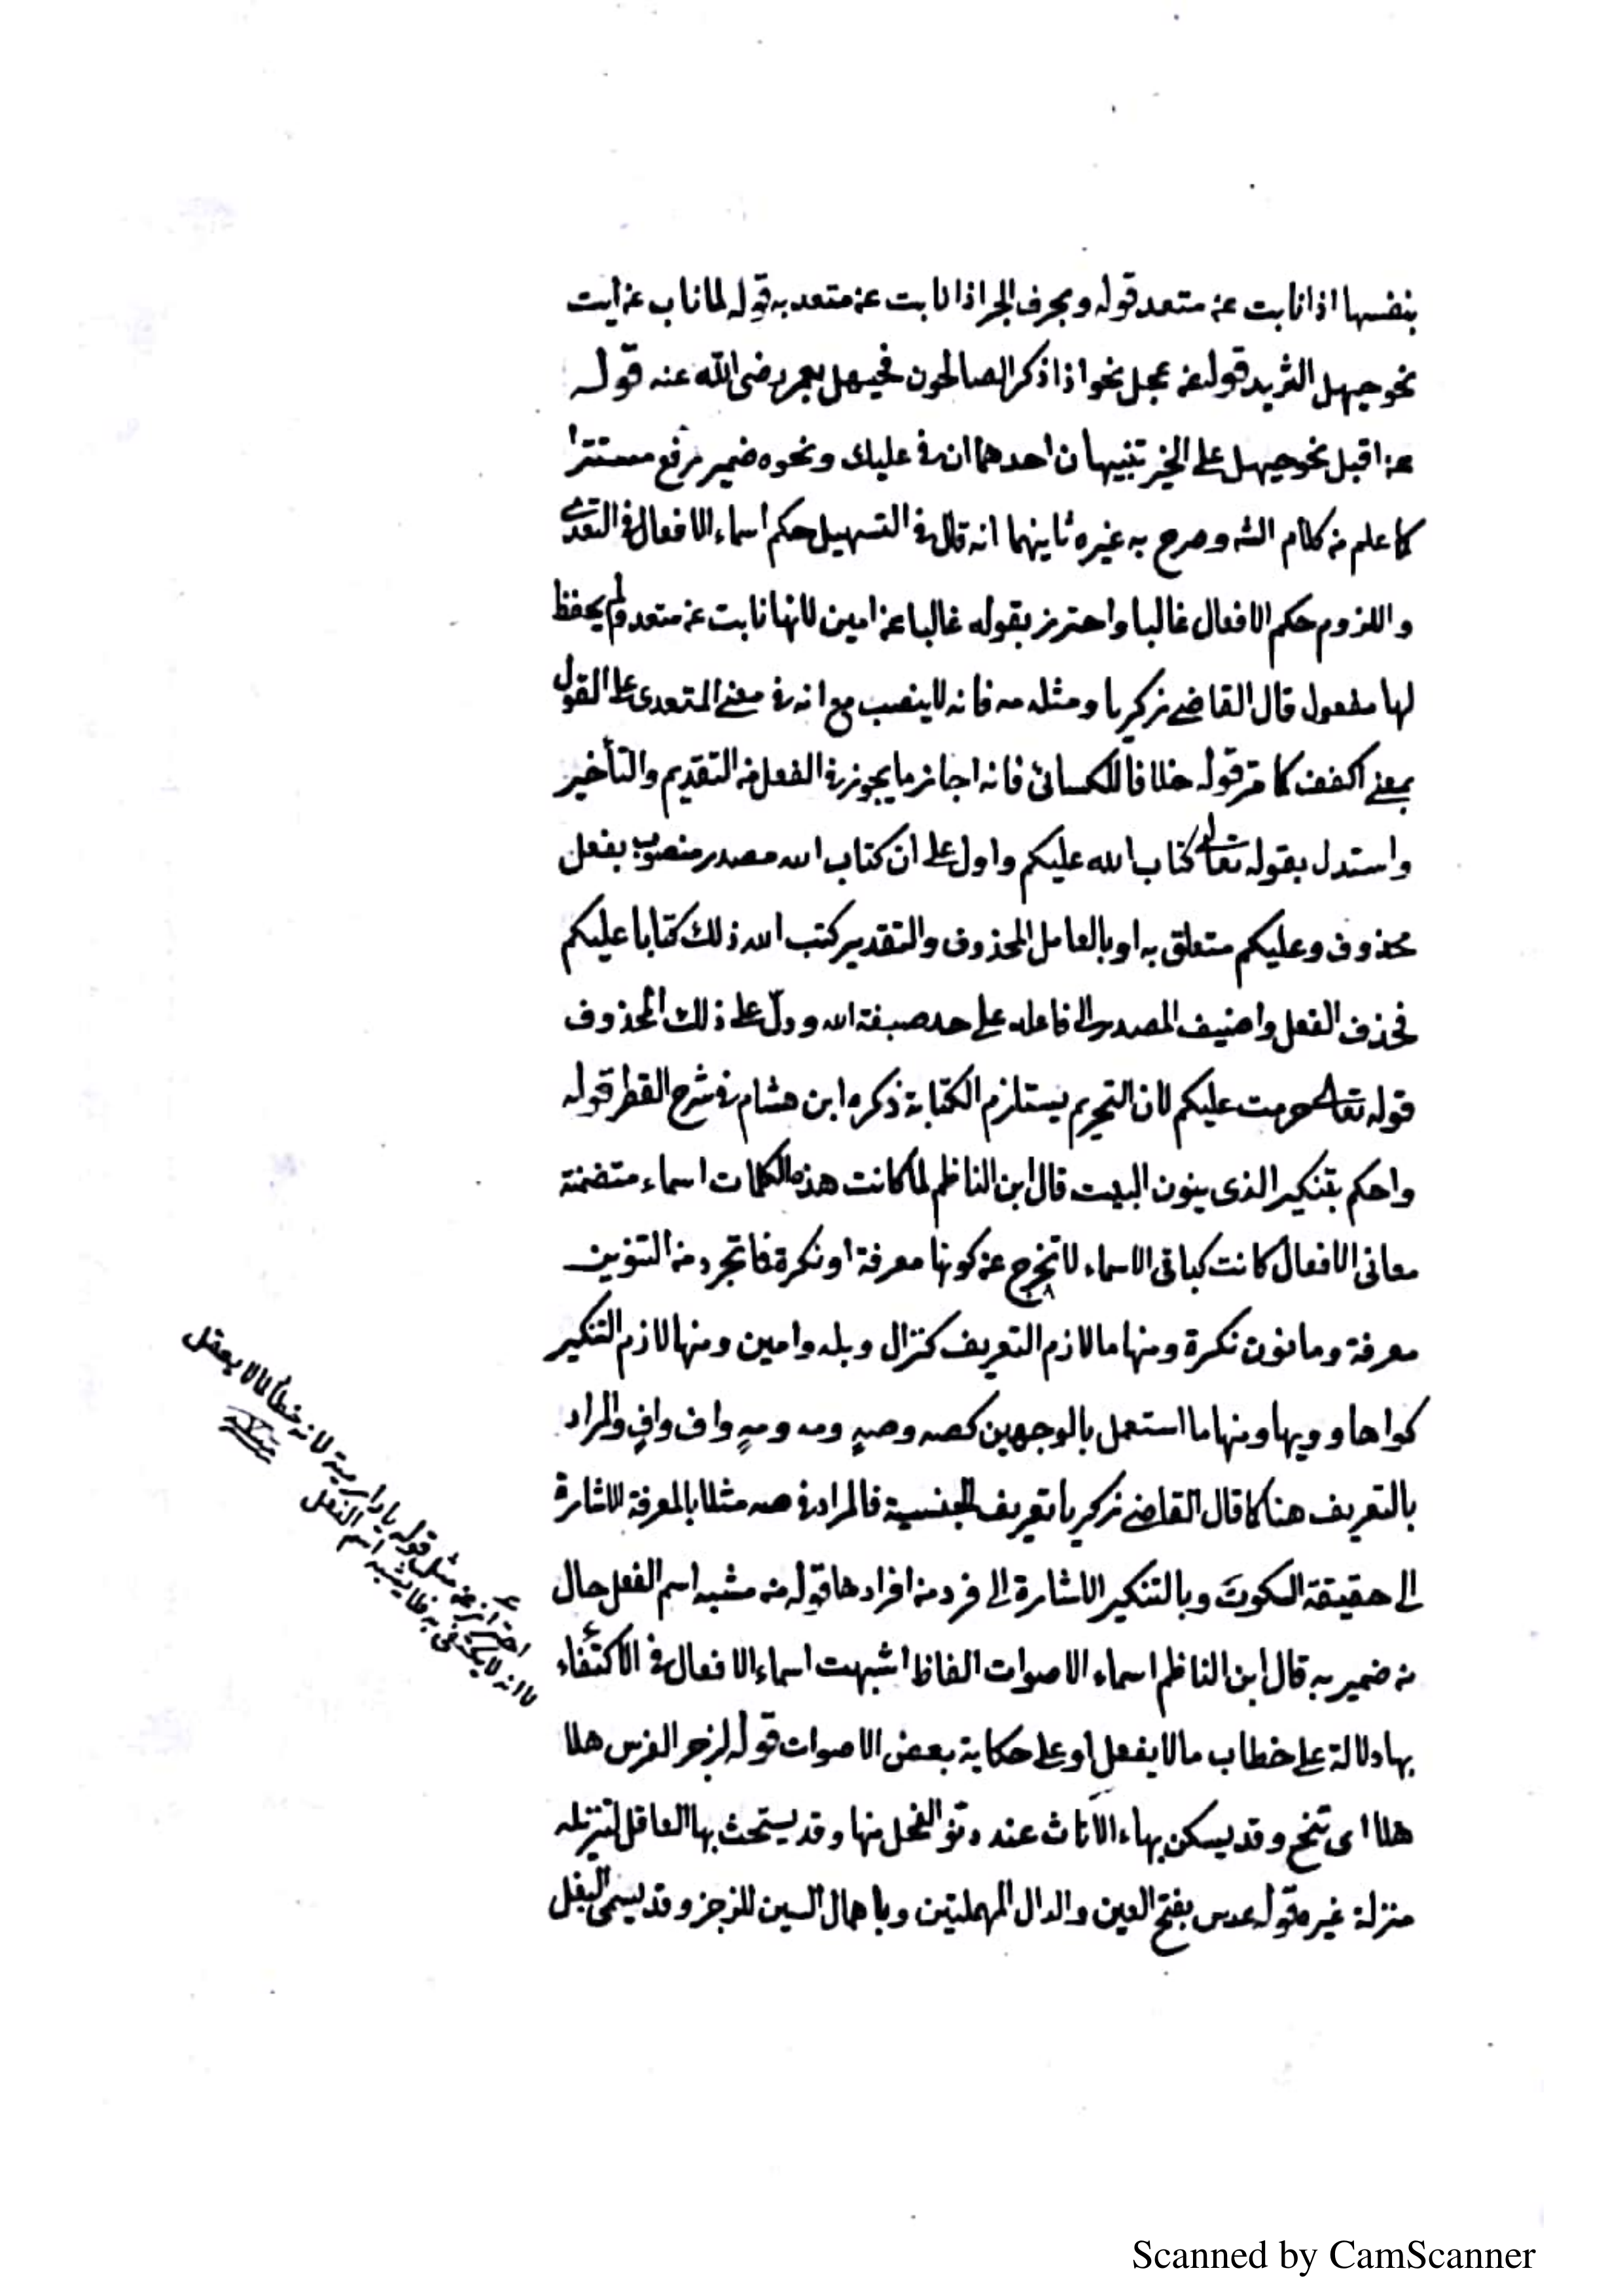 بنفسها اذا نابت عن متعد قوله وبحرف الجر اذا نابت عن متعد به قوله لما ناب عن ايت
نحو حيهل الثريد قوله عن عجل نحو اذا ذكر الصالحون فحيهل بعمر رضى الله عنه قوله
عن اقبل نحو حيهل على الخير تنبيهان احدهما ان فى عليك ونحوه ضمير رفع مستترا
كما علم من كلام الشه وصرح به غيره ثانيهما انه قال فى التسهيل حكم اسماء الافعال فى التعدى
واللزوم حكم الافعال غالبا واحترز بقوله غالبا عن امين لانها نابت عن متعد ولم يحفظ
لها مفعول قال القاضى زكريا ومثله مه فانه لا ينصب مع انه فى معنى المتعدى على القول
بمعنى اكفف كما مر قوله خلافا للكسائى فانه اجاز ما يجوز فى الفعل من التقديم والتأخير
واستدل بقوله تعالى كتاب الله عليكم واول على ان كتاب الله مصدر منصوب بفعل
محذوف وعليكم متعلق به او بالعامل المحذوف والتقدير كتب الله ذلك كتابا عليكم
فحذف الفعل واضيف المصدر الى فاعله على حد صبغة الله ودلّ على ذلك المحذوف
قوله تعالى حرمت عليكم لان التحريم يستلزم الكتابة ذكره ابن هشام فى شرح القطر قوله
واحكم بتنكير الذى ينون البيت قال ابن الناظم لما كانت هذه الكلمات اسماء متضمنة
معانى الافعال كانت كباقى الاسماء لا تخرج عن كونها معرفة او نكرة فما تجرد من التنوين
معرفة وما نون نكرة ومنها ما لازم التعريف كنزال وبله وامين ومنها لازم التنكير
كواها وويها ومنها ما استعمل بالوجهين كصه وصهٍ ومه ومهٍ واف وافٍ والمراد
بالتعريف هنا كما قال القاضى زكريا تعريف الجنسية فالمراد فى صه مثلا بالمعرفة الاشارة
الى حقيقة السكوت وبالتنكير الاشارة الى فرد من افرادها قوله من مشبه اسم الفعل حال
من ضمير به قال ابن الناظم اسماء الاصوات الفاظ اشبهت اسماء الافعال فى الاكتفاء
بها دلالة على خطاب ما لا يفعل او على حكاية بعض الاصوات قوله لزجر الفرس هلا
هلا اى تنح وقد يسكن بها الاناث عند دنو الفحل منها وقد يستحث بها العاقل لتنزيله
منزلة غيره قوله عدس بفتح العين والدال المهملتين وباهمال السين للزجر وقد يسمى البغل
احتراز عن مثل قوله يا دار مية لانه خطاب لما لا يعقل
الا انه لا يكتفى به فما يشبه اسم الفعل
Scanned by CamScanner